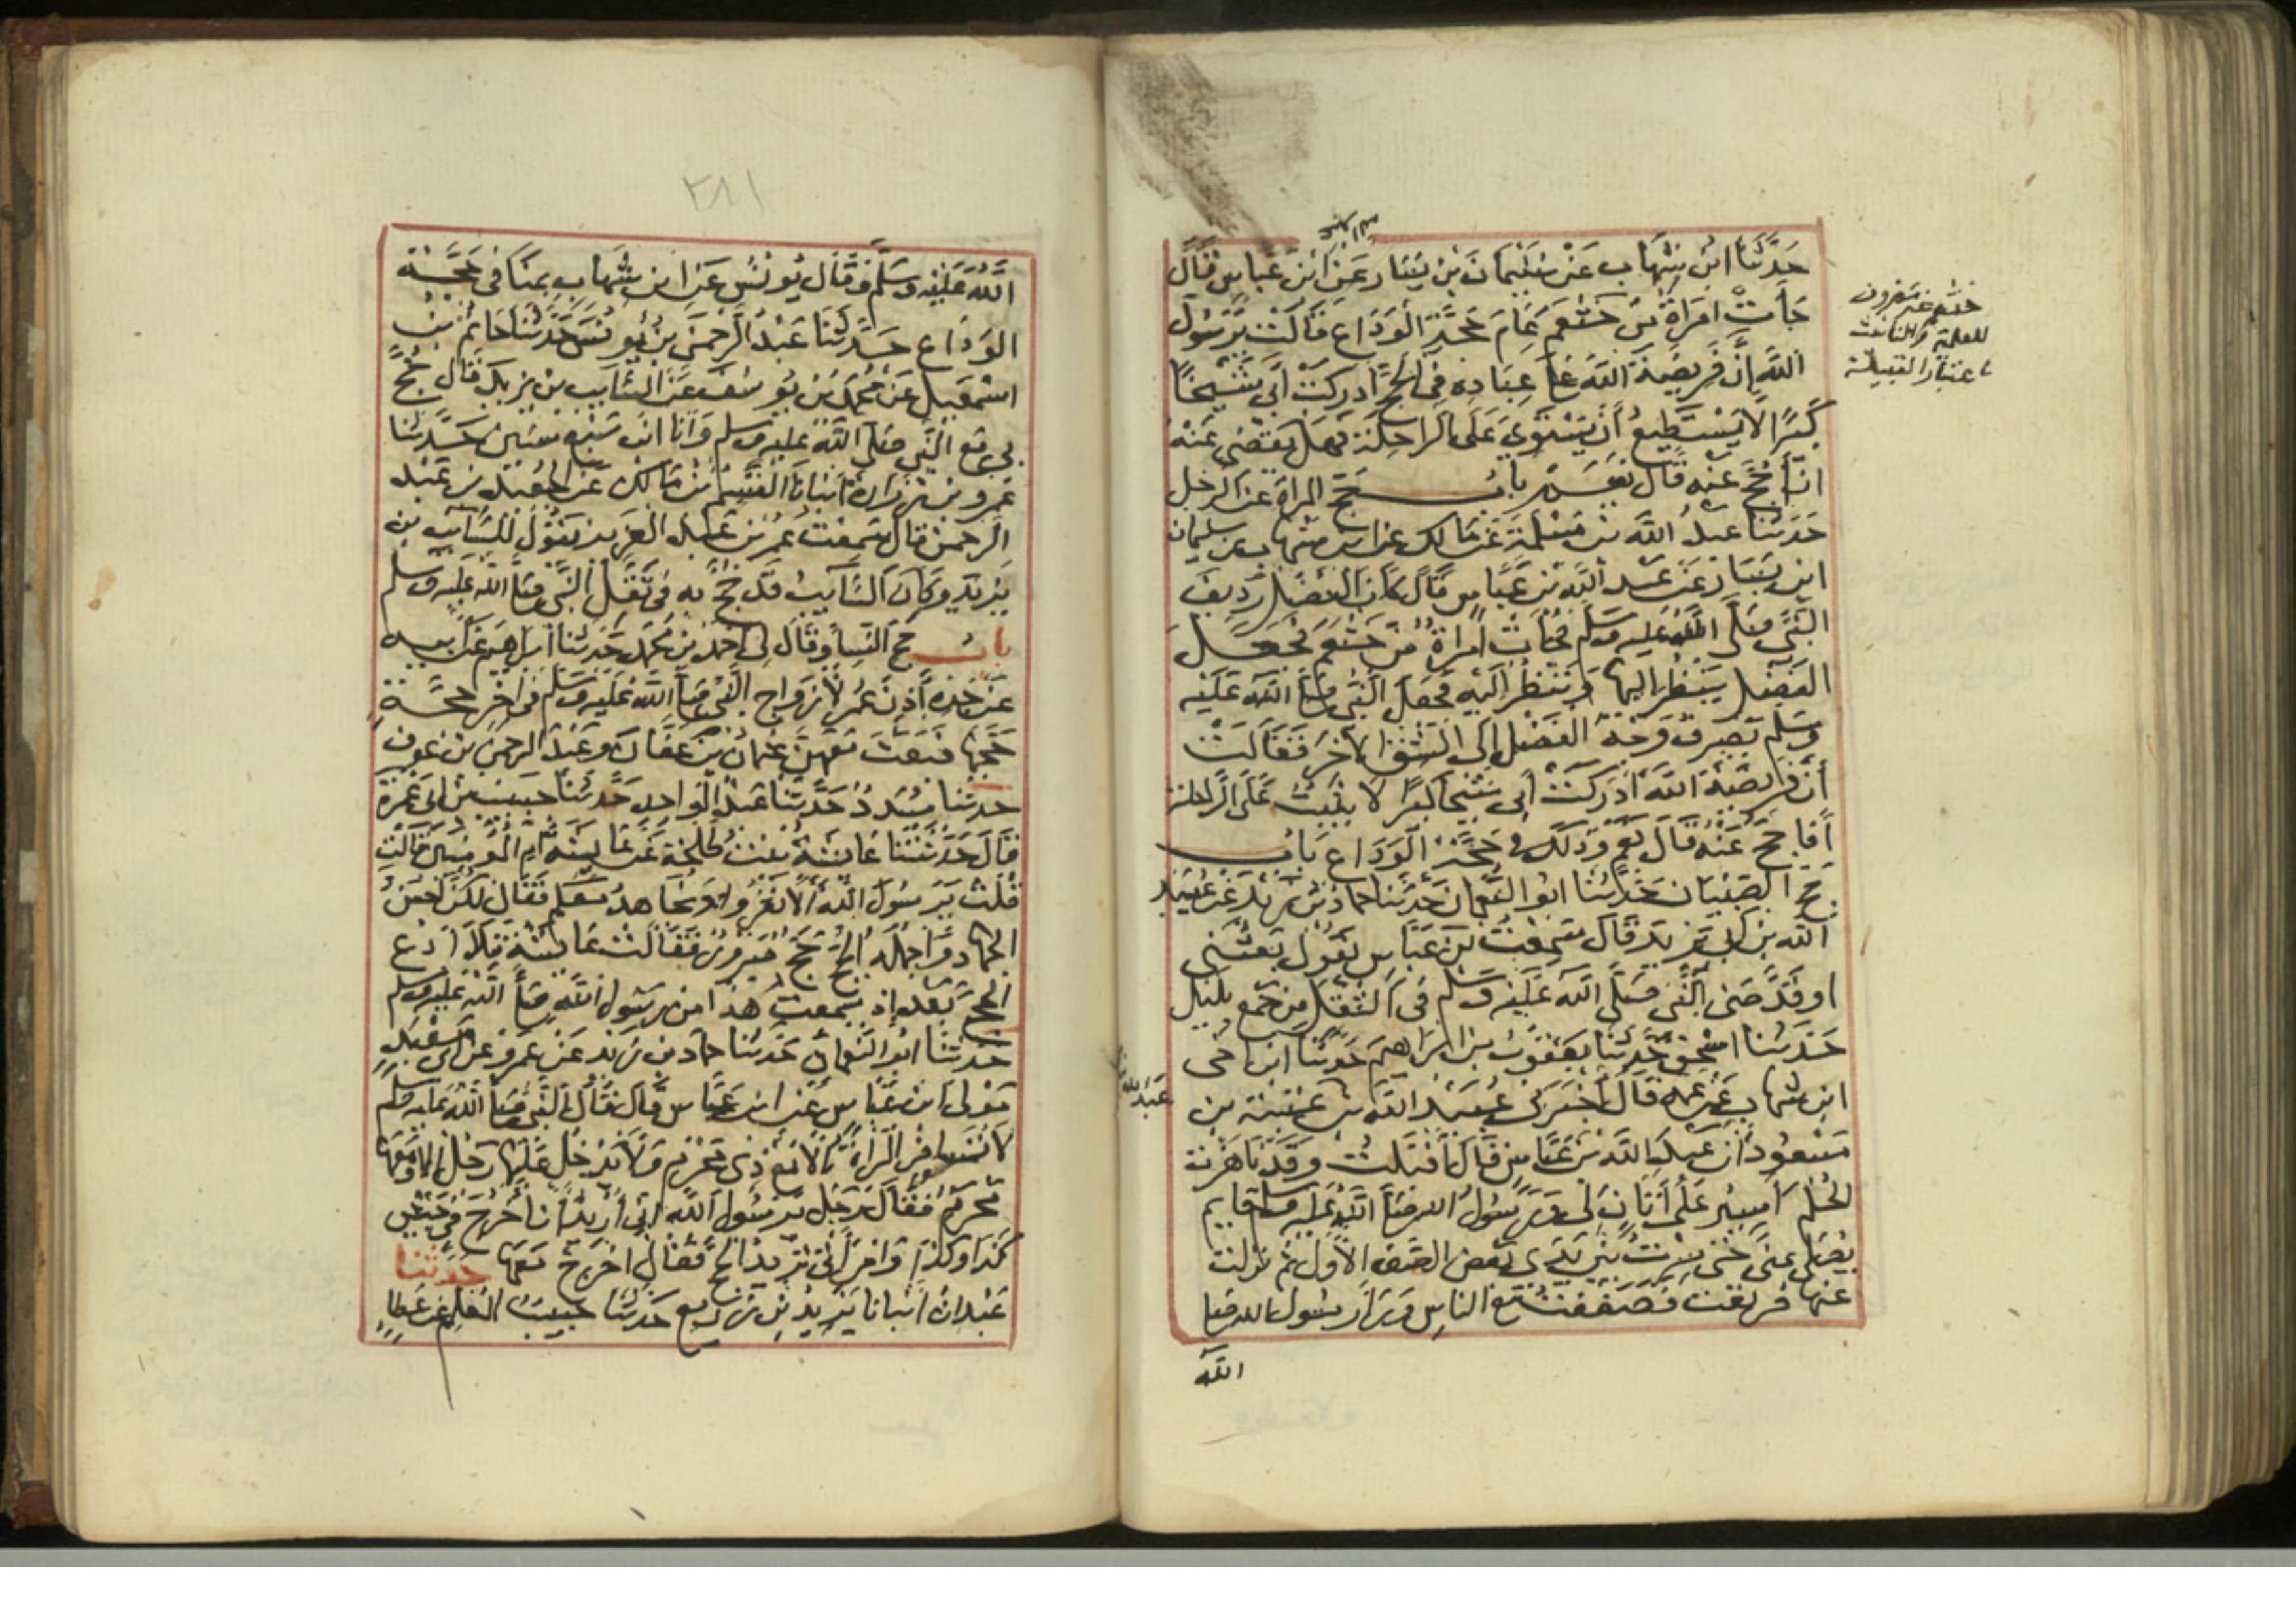 حَدَّثَنَا ابْنُ شِهَابٍ عَنْ سُلَيْمَانَ بْنِ يَسَارٍ عَنْ ابْنِ عَبَّاسٍ قَالَ
جَأَتْ امْرَاَةٌ مِنْ خَثْعَمَ عَامَ حَجَّةِ الْوَدَاعِ قَالَتْ يَرَسُولَ
اللَّهِ إِنَّ فَرِيضَةَ اللَّهِ عَلَى عِبَادِهِ فِي الْحَجِّ أَدْرَكَتْ أَبِي شَيْخًا
كَبِيرًا لَا يَسْتَطِيعُ أَنْ يَسْتَوِيَ عَلَى الرَّاحِلَةِ فَهَلْ يَقْضِي عَنْهُ
انْ أَحُجَّ عَنْهُ قَالَ نَعَمْ بابُ حَجِّ المراة عن الرجل
حَدَثَنَا عبدُ اللَّه بن مَسْلَمَةَ عَنْ مَالِكٍ عن ابن شهاب عن سليمان
ابن يَسَارٍ عَنْ عَبْدِ اللَّهِ بْنِ عَبَّاسٍ قَالَ كَانَ الْفَضْلُ رَدِيفَ
النَّبِيِّ صَلَّى اللَّهُ عَلَيْهِ وَسَلَّمَ فَجَأَتْ امْرَاةٌ مِنْ خَثْعَمَ فَجَعَلَ
الفَضْلُ يَنْظُرُ إِلَيْهَا وَتَنْظُرُ إِلَيْهِ فَجَعَلَ النَّبِي صَلَّى اللَّهُ عَلَيْهِ
وَسَلَّم يَصْرِفُ وَجْهَ الفَضْلِ إِلَى الشِّقِّ الآخَرِ فَقَالَتْ
أَنَّ فَرِيضَةَ اللَّهِ أَدْرَكَتْ أَبِي شَيْخًا كبيرًا لا يَثْبُتُ عَلَى الرَّاحلة
أَفَأَحُجُّ عَنْهُ قَالَ نَعَمْ وَذَلِكَ فِي حَجَّةِ الْوَدَاعِ بَابُ
حَجِّ الصِّبْيَانِ حَدَّثَنَا ابُو النُّعْمَانِ حَدَثَنَا حمادُ بْنُ زَيْدٍ عَنْ عُبَيْدِ
اللَّه بْنِ أَبِي يَزِيدَ قَالَ سَمِعْتُ ابْنَ عَبَّاسٍ يَقُولُ بَعَثَنِي
اوْ قَدَّمَنِي النَّبِي صَلَّى اللَّهُ عَلَيْهِ وَسَلَّم فِي الثَّقَلِ مِنْ جَمْعٍ بِلَيْلٍ
حَدَثَنَا اسْحَقُ حَدَّثَنَا يَعْقُوبُ بْنُ ابْرَاهِيمَ حَدَثَنَا ابن اخي
ابنِ شهاب عَنْ عَمِّهِ قَالَ أَخْبَرَنِي عُبَيْدُ اللَّهِ بن عُتْبَةَ بن
عَبْدِ الله بن
مَسْعُودٍ أَنَّ عَبْدَ اللَّهِ بْنَ عَبَّاسٍ قَالَ أَقْبَلْتُ وَقَدْ نَاهَزْتُ
الْحُلُمَ أَسِيرُ عَلَى أَتَانٍ لِي وَرَسُولُ الله صَلَّى اللَّهُ عَلَيْهِ وسلم قايم
يُصَلِّي بِمِنًى حَتَى سِرْتُ بَيْنَ يَدَيْ بَعْضِ الصَّفِّ الأَوَّلِ ثُمَّ نَزَلْتُ
عَنْهَا فَرَتَعَتْ فَصَفَفْتُ مَعَ النَّاسِ وَرَاَ رَسُولِ الله صَلَى
الله
خثعم غير مصروف
للعلمية والتانيث
باعتبار القبيلة
٢٨١
اللَّهُ عَلَيْهِ وَسَلَّمَ وَقَالَ يُونُسُ عَنِ ابْنِ شِهَابٍ بِمِنًا فِي حَجَّةِ
الوَدَاعِ حَدَّثَنَا عَبْدُ الرَّحْمَنِ بْنُ يُونُسَ حَدَّثَنَا حَاتِمُ بْنُ
اسْمَعِيلَ عَنْ مُحَمَّدِ بْنِ يُوسُفَ عَنِ السَّايِبِ بْنِ يَزِيدَ قَالَ حُجَّ
بِي مَعَ النَّبِي صَلَّى اللَّهُ عليه وسلم وَأَنَا ابْنُ سَبْعِ سِنِينَ حَدَّثَنَا
عَمْرُو بْنُ زُرَارَةَ أَنْبَأَنَا الْقَسِمُ بْنُ مَالِكٍ عَنِ الْجُعَيْدِ بْنِ عَبْدِ
الرَّحْمَنِ قَالَ سَمِعْتُ عُمَرَ بْنَ عَبْدِ الْعَزِيزِ يَقُولُ لِلسَّايِبِ بن
يَزِيدَ وَكَانَ السَّايِبُ قَدْ حُجَّ بِهِ فِي ثَقَلِ النَّبِي صَلَّى اللَّه عَلَيْهِ وَسَلم
بابُ حَجِّ النِّسَا وَقَالَ لِي احْمَدُ بْنُ مُحَمَّدٍ حَدَثَنَا ابْرَاهِيمُ عَنْ أَبِيهِ
عَنْ جَدِّهِ أَذِنَ عُمَرُ لِأَزْوَاجِ النَّبِي صَلَّى اللَّه عَلَيْهِ وَسَلَّمَ فِي اخِرِ حَجَّةٍ
حَجَّهَا فَبَعَثَ مَعَهُنَّ عُثْمَانَ بْنَ عَفَّانَ وَعَبْدَ الرحمن بْنَ عَوْفٍ
حدثَنَا مُسَدَّدٌ حَدَّثَنَا عَبْدُ الْوَاحِدِ حَدَّثَنَا حَبِيبُ بْنُ أَبِي عَمْرَةَ
قَالَ حَدَّثَتْنَا عَائِشَةُ بِنْتُ طَلْحَةَ عَنْ عَايِشَةَ أُمِّ الْمُومِنِينَ قَالَتْ
قُلْتُ يَرَسُولَ اللَّهِ أَلَا نَغْزُو اوَنُجَاهِدُ مَعَكُمْ فَقَالَ لَكُنَّ أَحْسَنُ
الْجِهَادِ وَأَجْمَلُهُ الْحَجُّ حَجٌّ مَبْرُورٌ فَقَالَتْ عَائِشَةُ فَلَا أَدَعُ
الْحَجَّ بَعْدَ إِذْ سَمِعْتُ هَذَا مِنْ رَسُولِ اللَّهِ صَلَّى اللَّهُ عَلَيْهِ وسلم
حَدَّثَنَا ابُو النُّعْمَانِ حَدَثَنَا حَمَادُ بْنُ زَيْدٍ عَنْ عَمْرٍو عَنْ أَبِي مَعْبَدٍ
مَوْلَى ابْنِ عَبَّاسٍ عَنِ ابْنِ عَبَّاسٍ قَالَ قَالَ النَّبِي صَلَّى اللَّهُ عَلَيْهِ وَسلم
لَا تُسَافِرِ الْمَرْاَةُ إِلَّا مَعَ ذِي مَحْرَمٍ وَلَا يَدْخُلُ عَلَيْهَا رَجُلٌ الا وَمَعَهَا
مَحْرَمٌ فَقَالَ رَجُلٌ يَرَسُولَ اللَّهِ انِّي أُرِيدُ أَنْ أَخْرُجَ فِي جَيْشِ
كَذَا وَكَذَا وَامْرَأَتِي تُرِيدُ الْحَجَّ فَقَالَ اخْرُجْ مَعَهَا حَدَّثَنَا
عَبْدَانُ أَنْبَأَنَا يَزِيدُ بْنُ زُرَيْعٍ حَدَّثَنَا حَبِيبٌ الْمُعَلِّمُ عَنْ عَطَاٍ